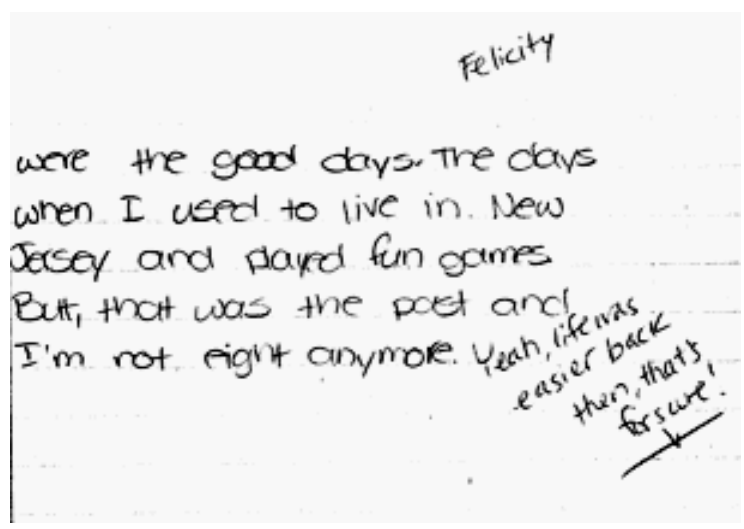 Felicity
were the good days. The days
when I used to live in New
Jersey and played fun games
But, that was the past and
I'm not eight anymore.
Yeah, life was
easier back
then, that's,
for sure!